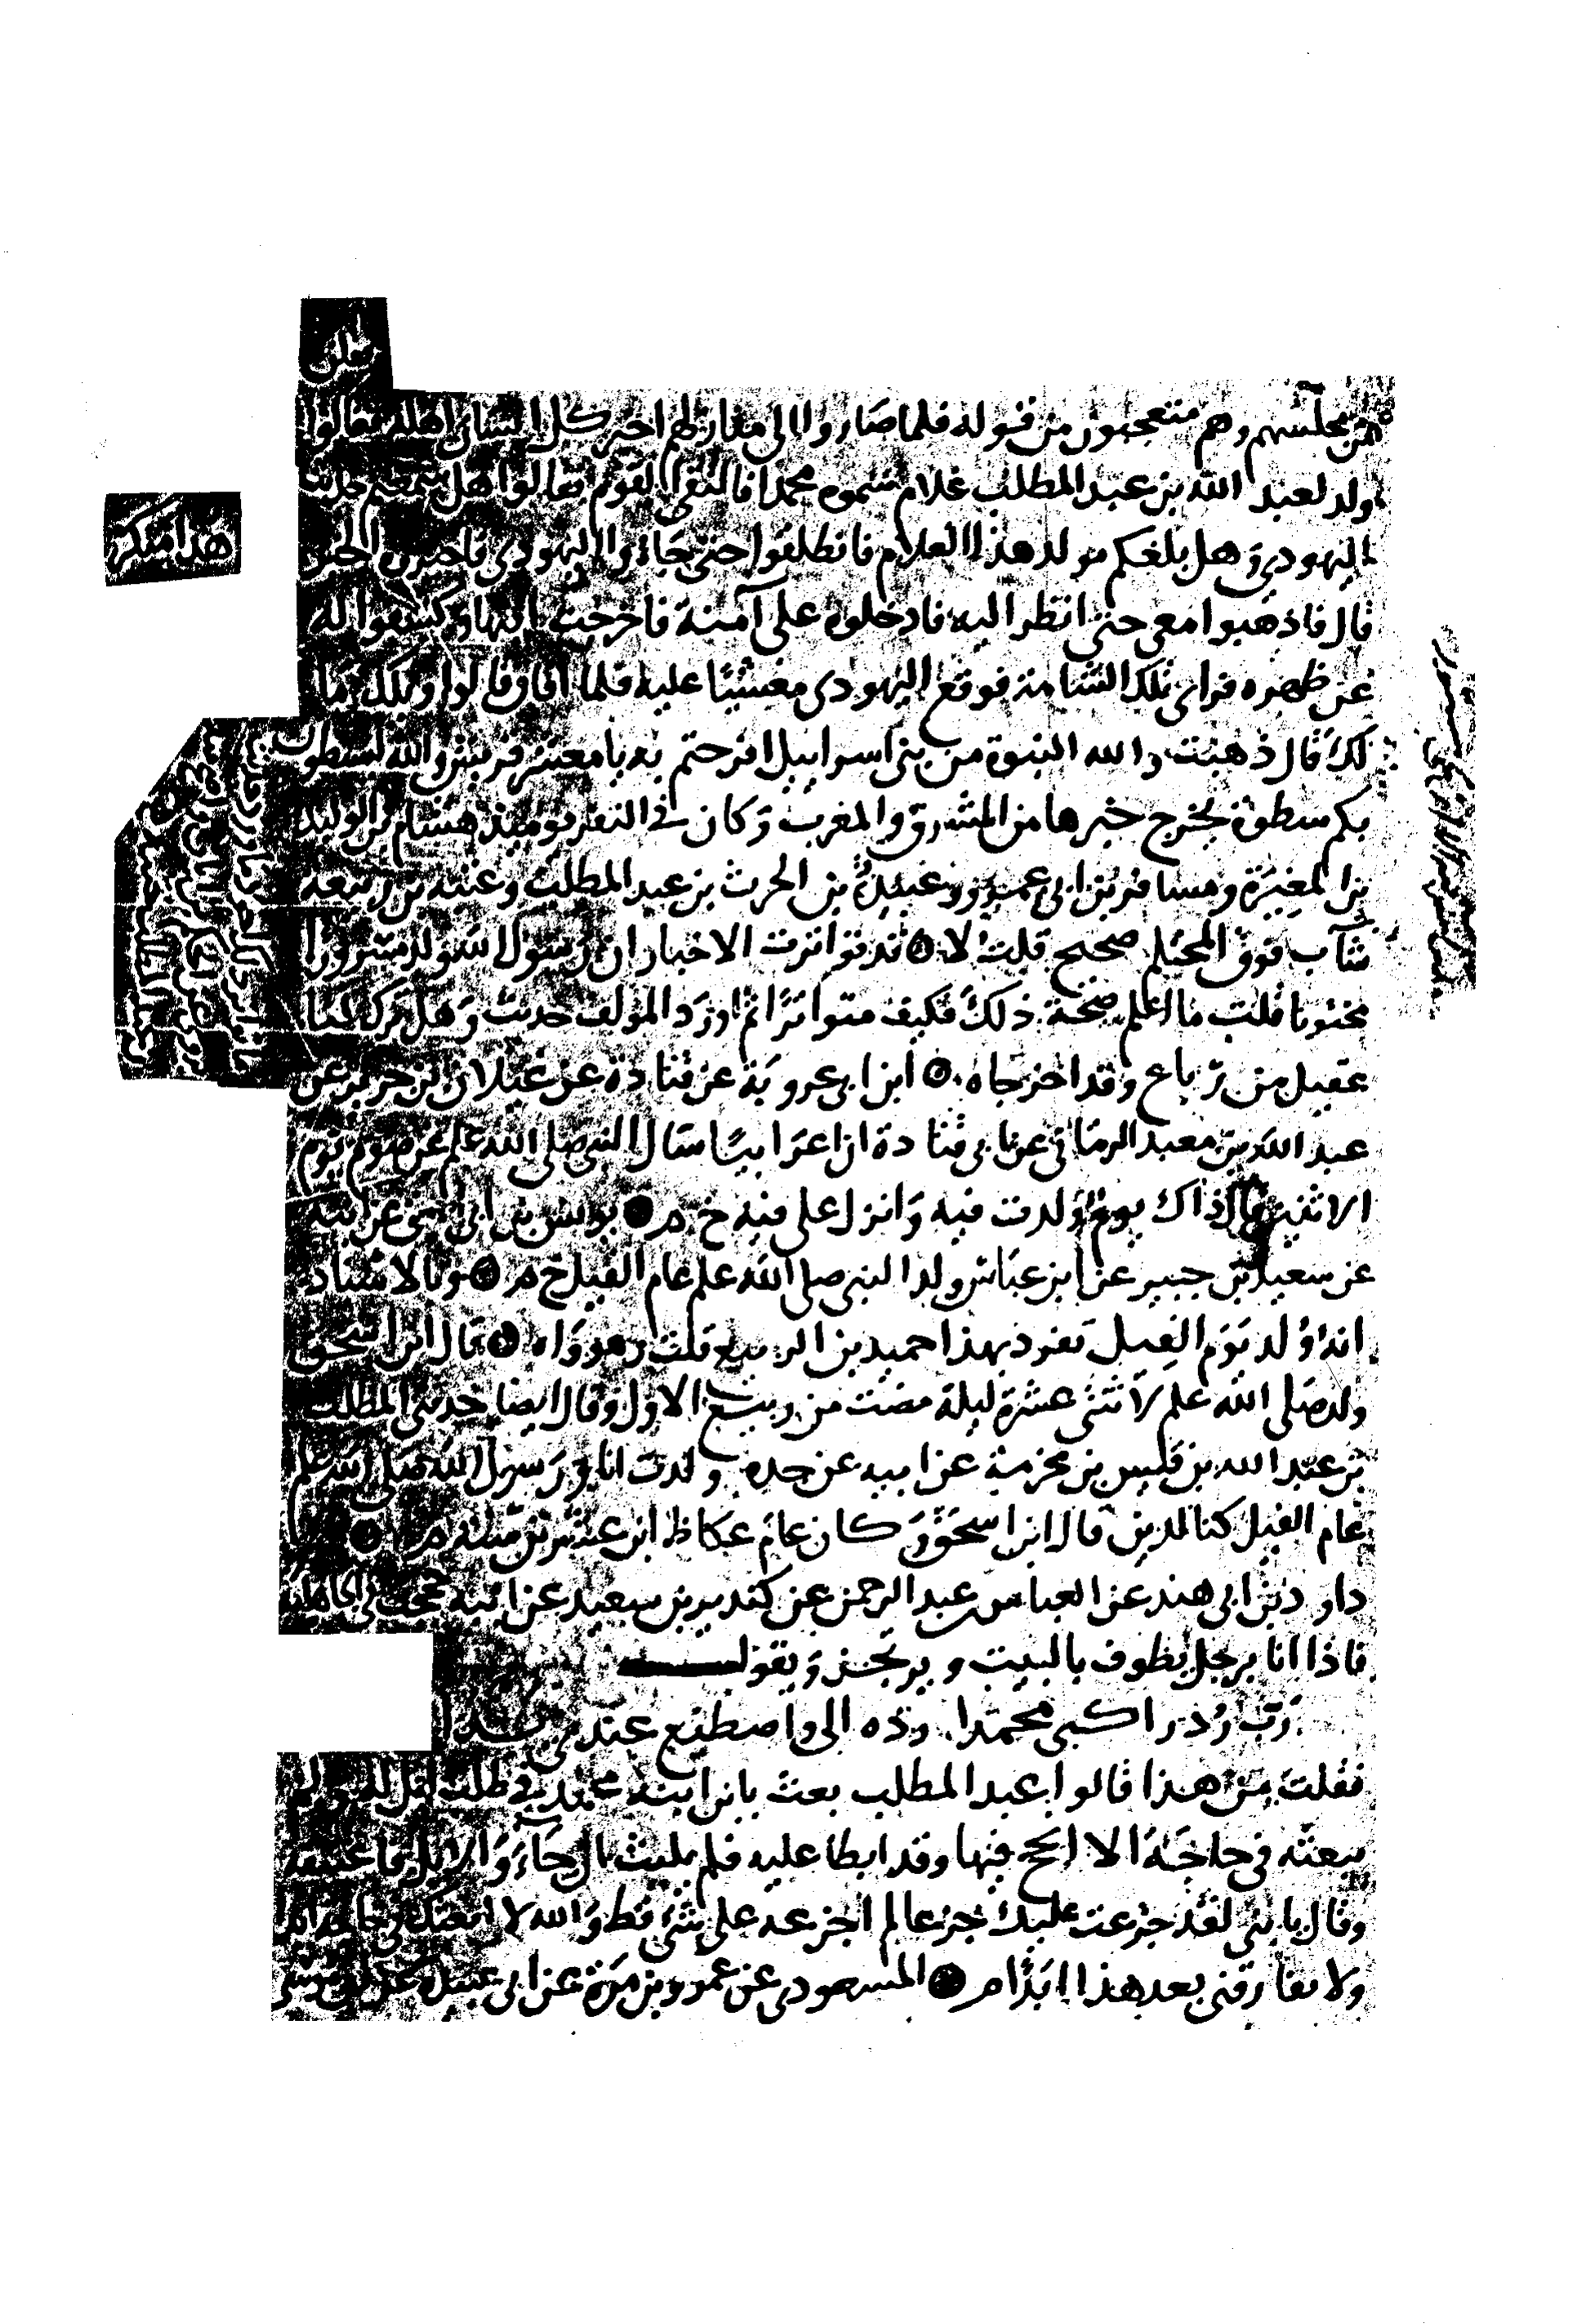 من مجلسهم وهم متعجبون من قوله فلما صاروا الى منازلهم اخبر كل انسان اهله فقالوا
ولد لعبد الله بن عبد المطلب غلام سموه محمدا فالتقى القوم فقالوا هل سمعتم حديث
اليهودي وهل بلغكم مولد هذا الغلام فانطلقوا حتى جاؤوا اليهودي فاخبروه الخبر
هذا منكر
قال فاذهبوا معي حتى انظر اليه فادخلوه على آمنة فاخرجت ابنها وكشفوا له
عن ظهره فراى تلك الشامة فوقع اليهودي مغشيا عليه فلما افاق قالوا ويلك ما
لك قال ذهبت والله النبوة من بني اسراييل افرحتم به يا معشر قريش والله ليسطون
بكم سطوة يخرج خبرها من المشرق والمغرب وكان في النفر يوميذ هشام بن الوليد
بن المغيرة ومسافر بن ابي عمرو وعبيدة بن الحرث بن عبد المطلب وعتبة بن ربيعة
شاب فوق المحتلم صحيح قلت لا ۞ قد تواترت الاخبار ان رسول الله ولد مسرورا
مختونا قلت ما اعلم صحة ذلك فكيف متواترا ثم اورد المؤلف حديث وهل ترك لنا
عقيل من رباع وقد اخرجاه ۞ ابن ابي عروبة عن قتادة عن غيلان بن جرير عن
عبد الله بن معبد الزماني عن ابي قتادة ان اعرابيا سال النبي صلى الله علم عن صوم يوم
الاثنين قال ذاك يوم ولدت فيه وانزل علي فيه خ م ۞ يونس بن ابي اسحق عن ابيه
عن سعيد بن جبير عن ابن عباس ولد النبي صلى الله علم عام الفيل خ م ۞ وبالاسناد
انه ولد يوم الفيل تفرد بهذا حميد بن الربيع قلت وهو واه ۞ قال ابن اسحق
ولد صلى الله علم لاثنتي عشرة ليلة مضت من ربيع الاول وقال ايضا حدثني المطلب
بن عبد الله بن قيس بن مخرمة عن ابيه عن جده ولدت انا ورسول الله صلى الله علم
عام الفيل كنا لدين قال ابن اسحق وكان عام عكاظ ابن عشرين سنة م ۞
داود بن ابي هند عن العباس بن عبد الرحمن عن كندير بن سعيد عن ابيه حججت في الجاهلية
فاذا انا برجل يطوف بالبيت ويرتجز ويقول
رب رد راكبي محمدا رده الي واصطنع عندي يدا
فقلت من هذا قالوا عبد المطلب بعث بابن ابنه محمد في طلب ابل له ولم
يبعثه في حاجة الا انجح فيها وقد ابطا عليه فلم يلبث ان جاء والابل فاعتنقه
وقال يا بني لقد جزعت عليك جزعا لم اجزعه على شيء قط والله لا ابعثك في حاجة ابدا
ولا تفارقني بعد هذا ابدا م ۞ المسعودي عن عمرو بن مرة عن ابي عبيدة عن ابي موسى